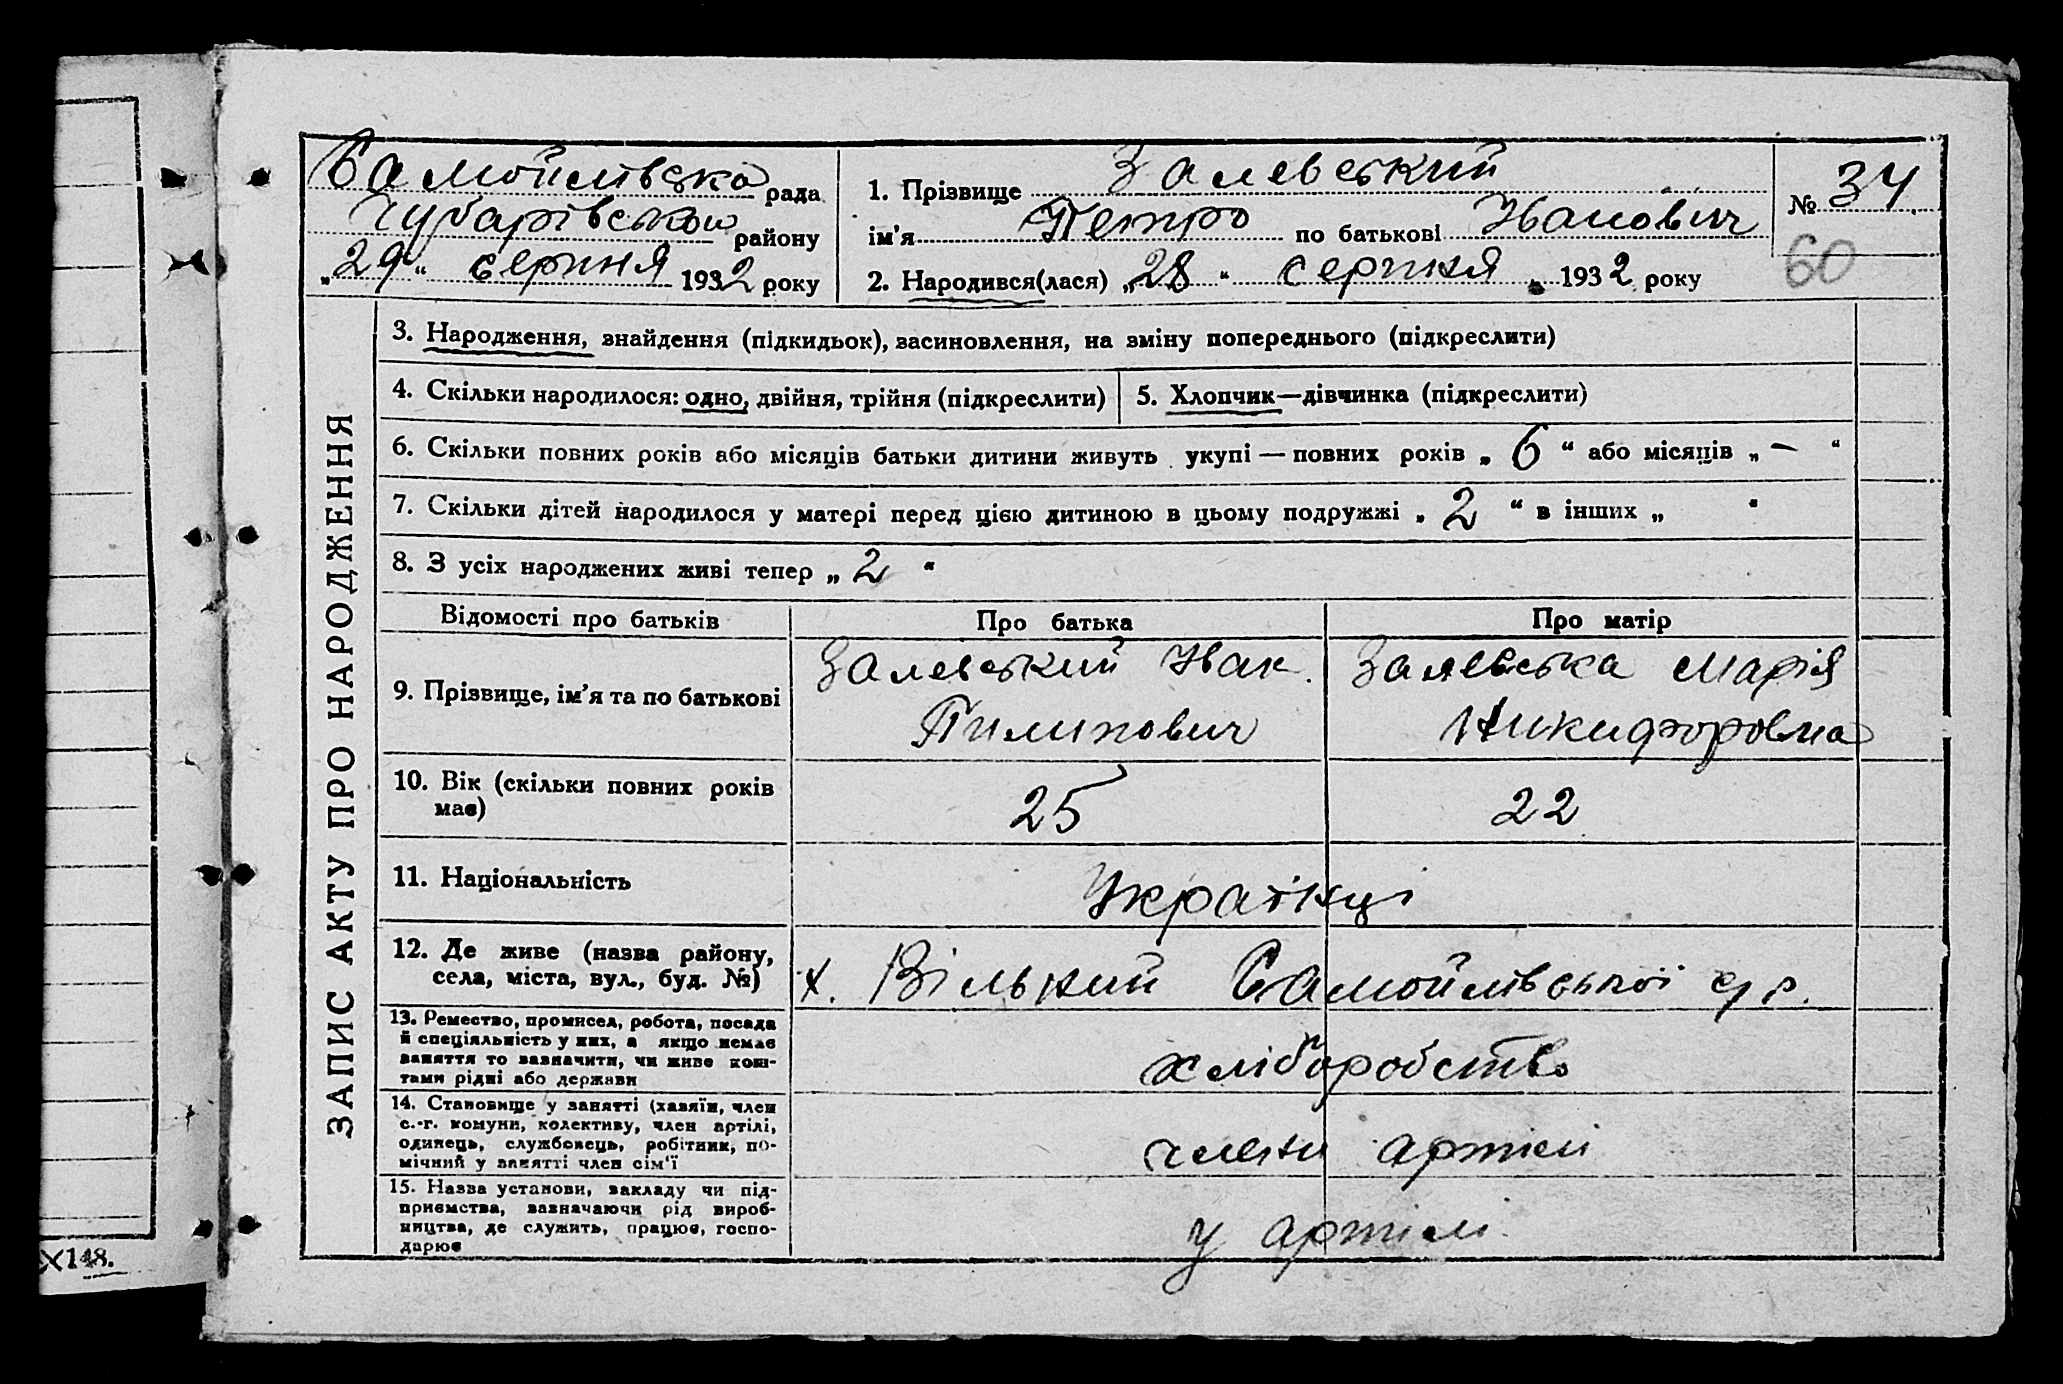 Самойлівська рада
Чубарівського району
„29“ серпня 1932 року
1. Прізвище Залевський
ім’я Петро по батькові Іванович
2. Народився(лася) „28“ серпня 1932 року
№ 34
60
ЗАПИС АКТУ ПРО НАРОДЖЕННЯ
3. Народження, знайдення (підкидьок), засиновлення, на зміну попереднього (підкреслити)
4. Скільки народилося: одно, двійня, трійня (підкреслити)
5. Хлопчик—дівчинка (підкреслити)
6. Скільки повних років або місяців батьки дитини живуть укупі — повних років „ 6 “ або місяців „ – “
7. Скільки дітей народилося у матері перед цією дитиною в цьому подружжі „ 2 “ в інших „ “
8. З усіх народжених живі тепер „ 2 “
Відомості про батьків Про батька Про матір
9. Прізвище, ім’я та по батькові
Залевський Іван
Пилипович
Залевська Марія
Никифоровна
10. Вік (скільки повних років
має)
25
22
11. Національність
Українці
12. Де живе (назва району,
села, міста, вул., буд. №)
х. Вільний Самойлівської с/р.
13. Ремество, промисел, робота, посада
й спеціяльність у них, а якщо немає
заняття то зазначити, чи живе кош-
тами рідні або держави
хліборобство
14. Становище у занятті (хазяїн, член
с.-г. комуни, колективу, член артілі,
одинець, службовець, робітник, по-
мічний у занятті член сім’ї
члени артілі
15. Назва установи, закладу чи під-
приємства, зазначаючи рід вироб-
ництва, де служить, працює, госпо-
дарює
у артілі
148.